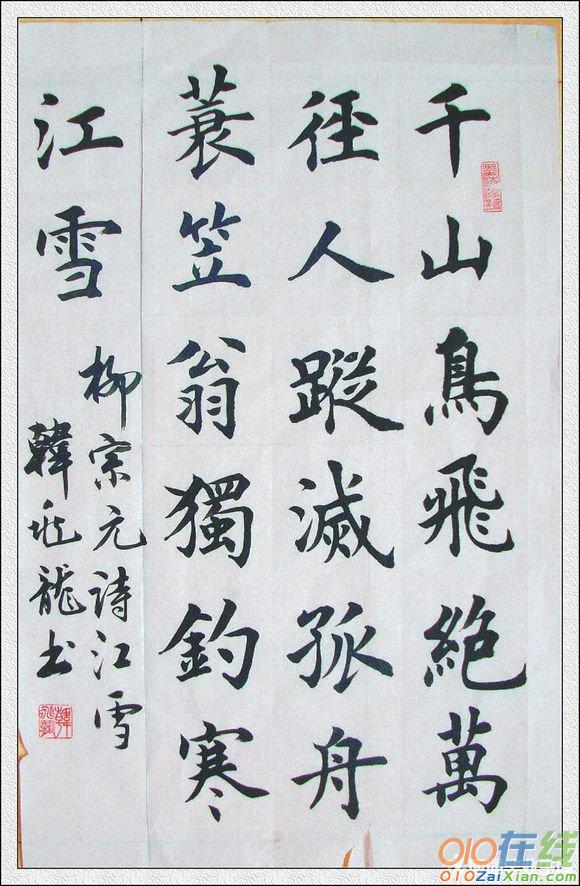 千山鳥飛絶萬
徑人蹤滅孤舟
蓑笠翁獨釣寒
江雪
柳宗元诗江雪
韓飛龍书
010在线
010ZaiXian.com